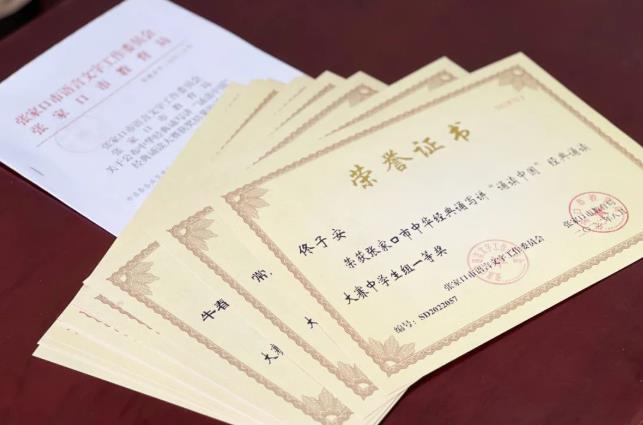 张家口市语言文字工作委员会
张家口市教育局
张家口市语言文字工作委员会
张家口市教育局
荣誉证书
佟子安
荣获张家口市中华经典诵写讲“诵读中国”经典诵读
大赛中学生组一等奖
编号：SD2022057
张家口市语言文字工作委员会
张家口市教育局
常
大
牛春
大赛